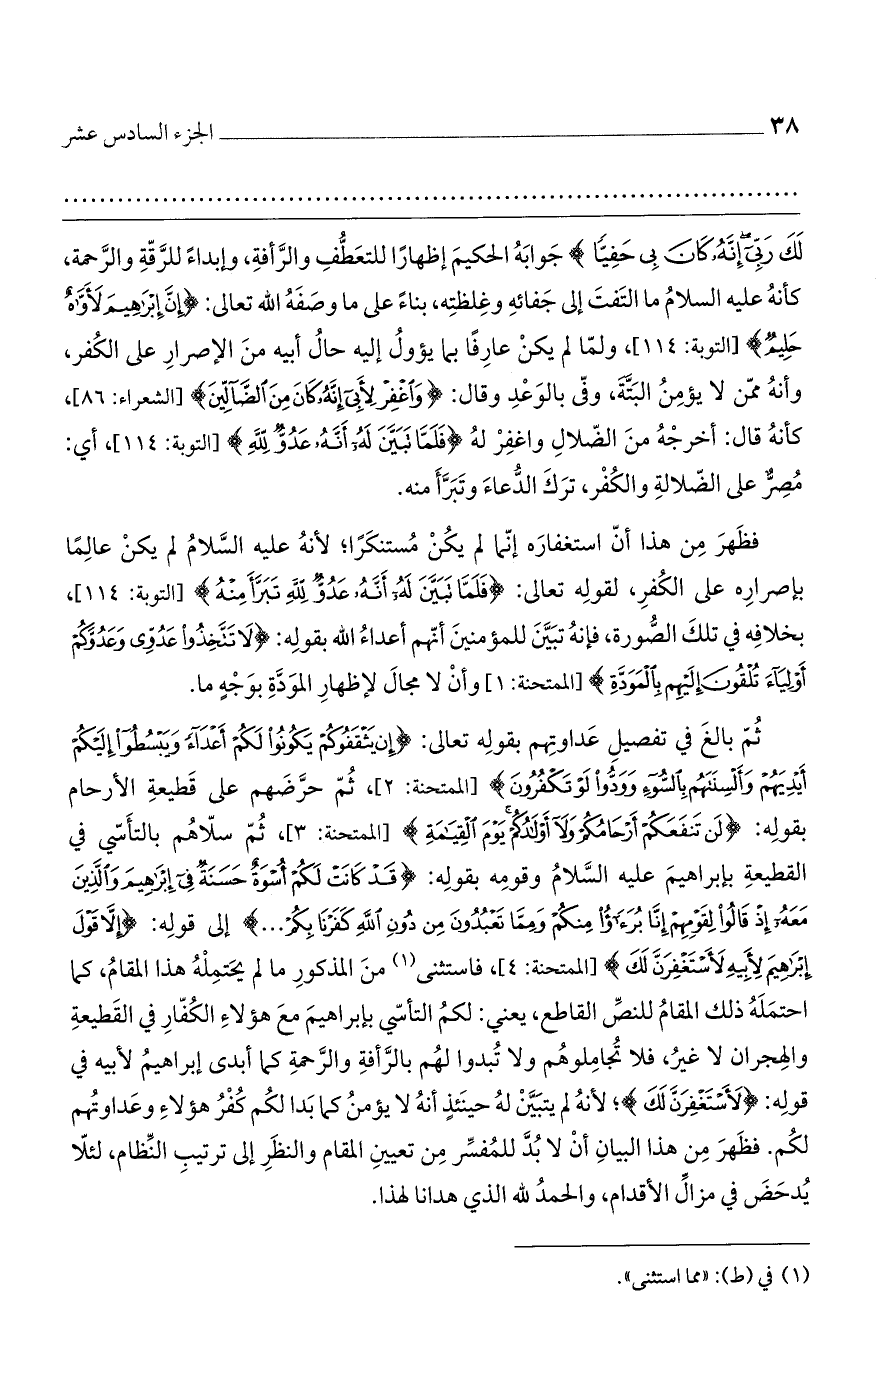 ٣٨ الجزء السادس عشر
لَكَ رَبِّيٓ إِنَّهُۥ كَانَ بِي حَفِيًّا ﴾ جوابَهُ الحكيمَ إظهارًا للتعَطُّفِ والرَّأفةِ، وإبداءً للرِّقّةِ والرَّحمة،
كأنهُ عليه السلامُ ما التَفتَ إلى جَفائهِ وغِلظتِه، بناءً على ما وصَفَهُ الله تعالى: ﴿إِنَّ إِبْرَٰهِيمَ لَأَوَّٰهٌ
حَلِيمٌ﴾ [التوبة: ١١٤]، ولمّا لم يكنْ عارِفًا بما يؤولُ إليه حالُ أبيه منَ الإصرارِ على الكُفر،
وأنهُ ممّن لا يؤمِنُ البَتَّةَ، وفّى بالوَعْدِ وقال: ﴿ وَٱغْفِرْ لِأَبِيٓ إِنَّهُۥ كَانَ مِنَ ٱلضَّآلِّينَ﴾ [الشعراء: ٨٦]،
كأنهُ قال: أخرجْهُ منَ الضّلالِ واغفِرْ لهُ ﴿فَلَمَّا تَبَيَّنَ لَهُۥٓ أَنَّهُۥ عَدُوٌّ لِّلَّهِ ﴾ [التوبة: ١١٤]، أي:
مُصِرٌّ على الضّلالةِ والكُفْر، ترَكَ الدُّعاءَ وتَبَرَّأَ منه.
فظَهرَ مِن هذا أنّ استغفارَه إنّما لم يكُنْ مُستنكَرًا؛ لأنهُ عليه السَّلامُ لم يكنْ عالِمًا
بإصرارِه على الكُفرِ، لقولِه تعالى: ﴿فَلَمَّا تَبَيَّنَ لَهُۥٓ أَنَّهُۥ عَدُوٌّ لِّلَّهِ تَبَرَّأَ مِنْهُ ﴾ [التوبة: ١١٤]،
بخلافِه في تلكَ الصُّورة، فإنهُ تبَيَّنَ للمؤمنينَ أنّهم أعداءُ الله بقولِه: ﴿لَا تَتَّخِذُوا۟ عَدُوِّي وَعَدُوَّكُمْ
أَوْلِيَآءَ تُلْقُونَ إِلَيْهِم بِٱلْمَوَدَّةِ ﴾ [الممتحنة: ١] وأنْ لا مجالَ لإظهارِ الموَدَّةِ بوَجْهٍ ما.
ثُمّ بالغَ في تفصيلِ عَداوتِهم بقولِه تعالى: ﴿إِن يَثْقَفُوكُمْ يَكُونُوا۟ لَكُمْ أَعْدَآءً وَيَبْسُطُوٓا۟ إِلَيْكُمْ
أَيْدِيَهُمْ وَأَلْسِنَتَهُم بِٱلسُّوٓءِ وَوَدُّوا۟ لَوْ تَكْفُرُونَ﴾ [الممتحنة: ٢]، ثُمّ حرَّضَهم على قَطيعةِ الأرحام
بقولِه: ﴿لَن تَنفَعَكُمْ أَرْحَامُكُمْ وَلَآ أَوْلَٰدُكُمْ ۚ يَوْمَ ٱلْقِيَٰمَةِ ﴾ [الممتحنة: ٣]، ثُمّ سلّاهُم بالتأسّي في
القطيعةِ بإبراهيمَ عليه السَّلامُ وقومِه بقولِه: ﴿قَدْ كَانَتْ لَكُمْ أُسْوَةٌ حَسَنَةٌ فِيٓ إِبْرَٰهِيمَ وَٱلَّذِينَ
مَعَهُۥٓ إِذْ قَالُوا۟ لِقَوْمِهِمْ إِنَّا بُرَءَٰٓؤُا۟ مِنكُمْ وَمِمَّا تَعْبُدُونَ مِن دُونِ ٱللَّهِ كَفَرْنَا بِكُمْ...﴾ إلى قولِه: ﴿إِلَّا قَوْلَ
إِبْرَٰهِيمَ لِأَبِيهِ لَأَسْتَغْفِرَنَّ لَكَ ﴾ [الممتحنة: ٤]، فاستثنى(١) منَ المذكورِ ما لم يَحتمِلْهُ هذا المقامُ، كما
احتمَلَهُ ذلك المقامُ للنصِّ القاطع، يعني: لكمُ التأسّي بإبراهيمَ معَ هؤلاءِ الكفّارِ في القَطيعةِ
والهِجران لا غيرُ، فلا تُجامِلوهُم ولا تُبدوا لهُم بالرَّأفةِ والرَّحمةِ كما أبدى إبراهيمُ لأبيه في
قولِه: ﴿لَأَسْتَغْفِرَنَّ لَكَ ﴾؛ لأنهُ لم يتبَيَّنْ لهُ حينَئذٍ أنهُ لا يؤمنُ كما بَدا لكُم كُفْرُ هؤلاءِ وعَداوتُهم
لكُم. فظَهرَ مِن هذا البيانِ أنْ لا بُدَّ للمُفسِّر مِن تعيينِ المقام والنظَرِ إلى ترتيبِ النِّظام، لئلّا
يُدحَضَ في مزالِّ الأقدام، والحمدُ لله الذي هدانا لهذا.
(١) في (ط): «مما استثنى».